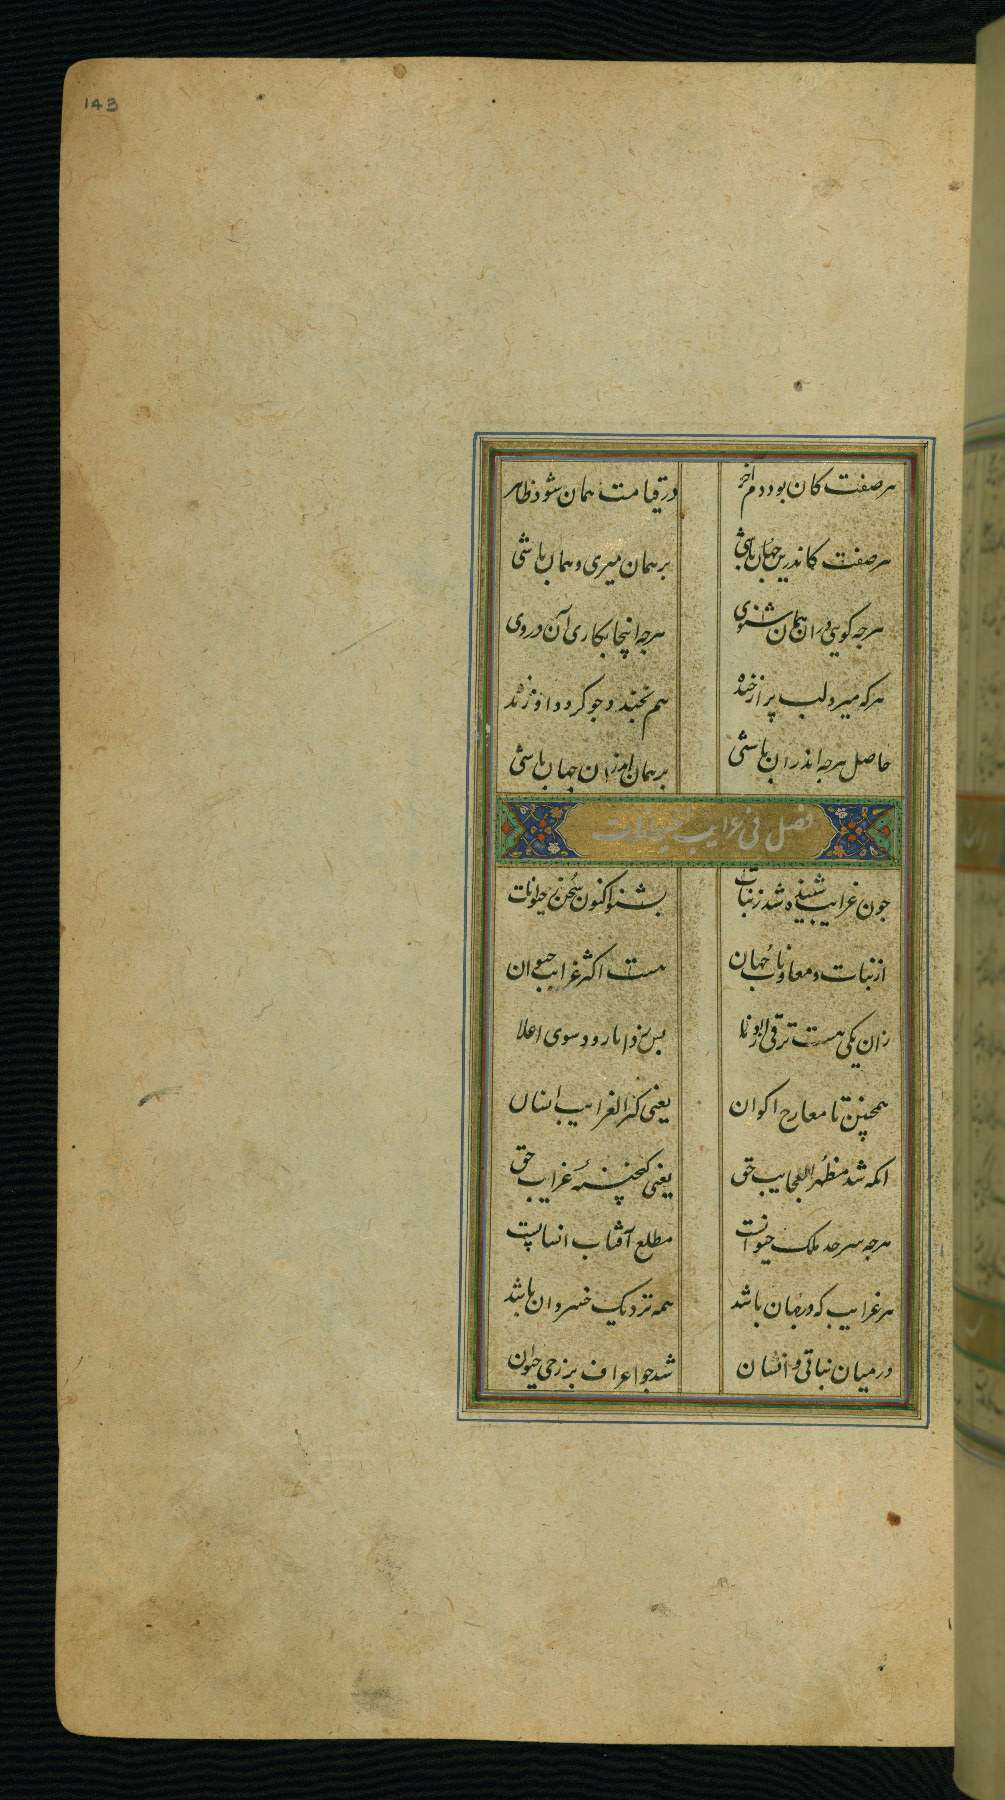 143
هر صفت کان بود دم آخر در قیامت همان شود ظاهر
هر صفت کاندرین جهان باشی بر همان میری و همان باشی
هرجه کویی در ان همان شنوی هرجه اینجا بکاری آن دروی
هرکه میرد لب پر از خنده هم بخندد جو کردد او زنده
حاصل هرجه اندران باشی بر همان اندران جهان باشی
فصل فی غرایب الحیوانات
جون غرایب شنیده شد ز نبات بشنو اکنون سخن ز حیوانات
از نبات و معادن جهان هست اکثر غرایب حیوان
زان یکی هست ترقی پس رود سوی اعلا
همچنین تا معارج اکوان یعنی کنز الغرایب انسان
انکه شد مظهر العجایب حق یعنی کنجینهٔ غرایب حق
هرجه سرحد ملک حیوانست مطلع آفتاب انسانیست
هر غرایب که در جهان باشد همه نزدیک خسروان باشد
در میان نباتی و انسان شد جو اعراف برزخی حیوان